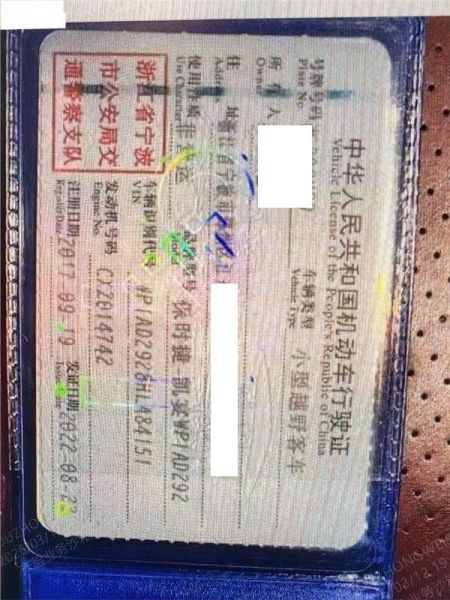 中华人民共和国机动车行驶证
Vehicle License of the People's Republic of China
号牌号码 Plate No. 车辆类型 Vehicle Type 小型越野客车
所有人 Owner
住址 Address 浙江省宁波市
使用性质 Use Character 非营运 品牌型号 Model 保时捷-凯宴WP1AD292
浙江省宁波
市公安局交
通警察支队
车辆识别代号 VIN WP1AD2926HLA84151
发动机号码 Engine No. CXZ014742
注册日期 Register Date 2017-09-19 发证日期 Issue Date 2022-08-2